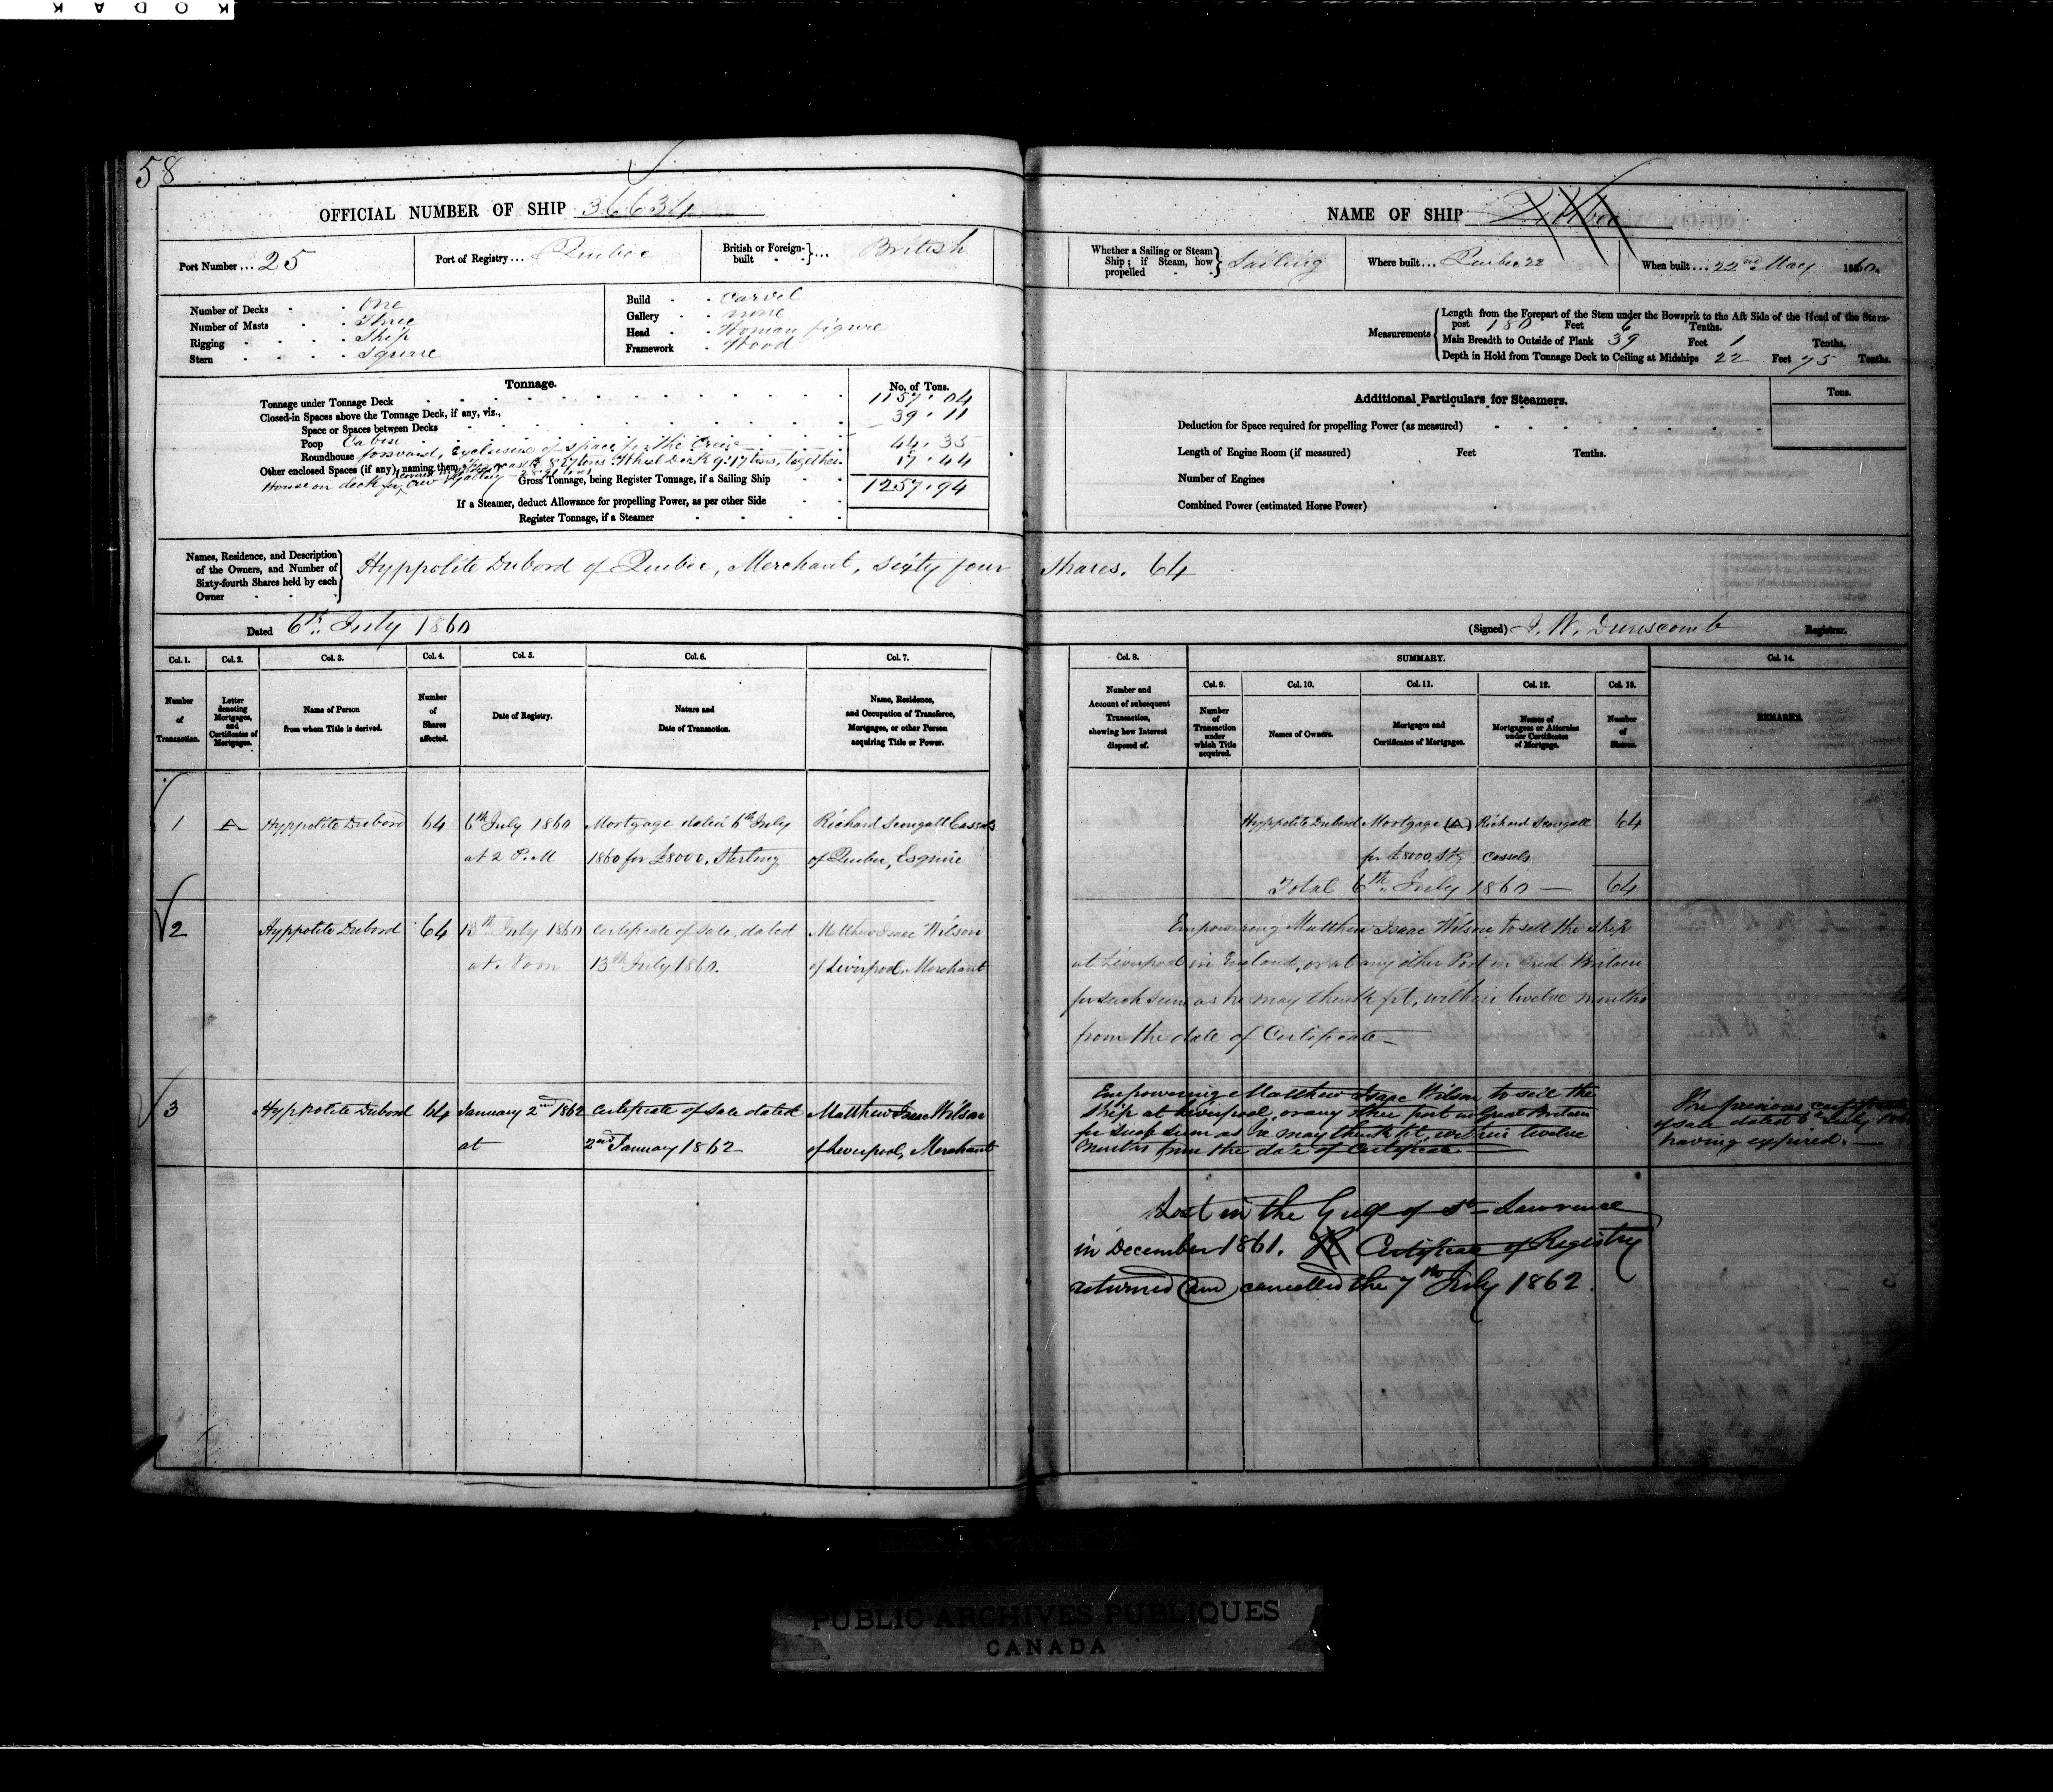 KODAK
58
OFFICIAL NUMBER OF SHIP 36634
Port Number ... 25
Port of Registry ... Quebec
British or Foreign-built ... British
Number of Decks One
Number of Masts Three
Rigging Ship
Stern Square
Build Carvel
Gallery none
Head Woman figure
Framework Wood
Tonnage. No. of Tons.
Tonnage under Tonnage Deck 1157.04
Closed-in Spaces above the Tonnage Deck, if any, viz.,
Space or Spaces between Decks 39.11
Poop Cabin
Roundhouse forward, exclusive of space for the Crew 44.35
Other enclosed Spaces (if any), naming them 8.27 tons Wheel Deck 9.17 tons, together 17.44
House on deck for Crew & Galley
Gross Tonnage, being Register Tonnage, if a Sailing Ship 1257.94
If a Steamer, deduct Allowance for propelling Power, as per other Side
Register Tonnage, if a Steamer
Names, Residence, and Description of the Owners, and Number of Sixty-fourth Shares held by each Owner
Hyppolite Dubord of Quebec, Merchant, Sixty four
Dated 6th July 1860
Col. 1. Col. 2. Col. 3. Col. 4. Col. 5. Col. 6. Col. 7.
Number of Transaction.
Letter denoting Mortgages, and Certificates of Mortgages.
Name of Person from whom Title is derived.
Number of Shares affected.
Date of Registry.
Nature and Date of Transaction.
Name, Residence, and Occupation of Transferee, Mortgagee, or other Person acquiring Title or Power.
1 A Hyppolite Dubord 64 6th July 1860 Mortgage dated 6th July Richard Scougall Cassels
at 2 P.M 1860 for £8000, Sterling of Quebec, Esquire
2 Hyppolite Dubord 64 13th July 1860 Certificate of Sale, dated Matthew Isaac Wilson
at Noon 13th July 1860. of Liverpool, Merchant
3 Hyppolite Dubord 64 January 2nd 1862 Certificate of Sale dated Matthew Isaac Wilson
at 2nd January 1862 of Liverpool, Merchant
NAME OF SHIP
Whether a Sailing or Steam Ship; if Steam, how propelled Sailing
Where built ... Quebec
When built ... 22nd May 1860.
Measurements
Length from the Forepart of the Stem under the Bowsprit to the Aft Side of the Head of the Stern-
post 180 Feet 6 Tenths.
Main Breadth to Outside of Plank 39 Feet 1 Tenths.
Depth in Hold from Tonnage Deck to Ceiling at Midships 22 Feet 75 Tenths.
Additional Particulars for Steamers. Tons.
Deduction for Space required for propelling Power (as measured)
Length of Engine Room (if measured) Feet Tenths.
Number of Engines
Combined Power (estimated Horse Power)
Shares. 64
(Signed) J. W. Dunscomb Registrar.
Col. 8. SUMMARY. Col. 14.
Col. 9. Col. 10. Col. 11. Col. 12. Col. 13.
Number and Account of subsequent Transaction, showing how Interest disposed of.
Number of Transaction under which Title acquired.
Names of Owners.
Mortgages and Certificates of Mortgages.
Names of Mortgagees or Attornies under Certificates of Mortgage.
Number of Shares.
REMARKS.
Hyppolite Dubord Mortgage (A) Richard Scougall 64
for £8000, Stg Cassels
Total 6th July 1860 — 64
Empowering Matthew Isaac Wilson to sell the ship
at Liverpool in England, or at any other Port in Great Britain
for such sum as he may think fit, within twelve months
from the date of Certificate —
Empowering Matthew Isaac Wilson to sell the
Ship at Liverpool, or any other port in Great Britain
for such sum as he may think fit, within twelve
Months from the date of Certificate —
The previous certificate
of sale dated July
having expired. —
Lost in the Gulf of St. Lawrence
in December 1861. Certificate of Registry
returned and cancelled the 7th July 1862.
PUBLIC ARCHIVES PUBLIQUES
CANADA